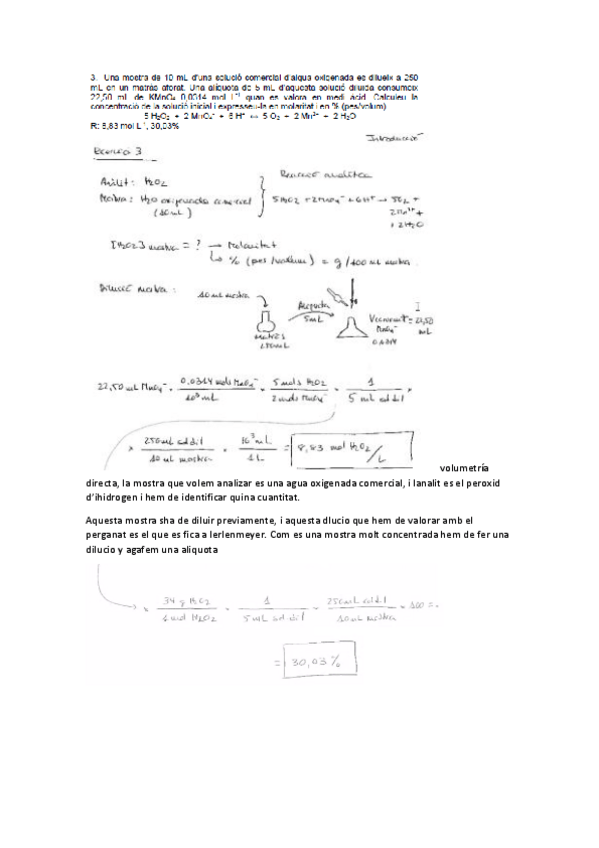 3. Una mostra de 10 mL d'una solució comercial d'aigua oxigenada es dilueix a 250
mL en un matràs aforat. Una alíquota de 5 mL d'aquesta solució diluïda consumeix
22,50 mL de KMnO₄ 0,0314 mol L⁻¹ quan es valora en medi àcid. Calculeu la
concentració de la solució inicial i expresseu-la en molaritat i en % (pes/volum)
5 H₂O₂ + 2 MnO₄⁻ + 6 H⁺ ↔ 5 O₂ + 2 Mn²⁺ + 2 H₂O
R: 8,83 mol L⁻¹, 30,03%
Introducció
3
Anàlit: H₂O₂
Reacció analítica
Mostra: H₂O oxigenada comercial
(10 mL)
5 H₂O2 + 2 MnO₄⁻ + 6H⁺ → 5O₂ +
2Mn²⁺ +
+ 2H₂O
[H₂O2] mostra = ? → Molaritat
↳ % (pes/volum) = g/100 mL mostra
Dilució mostra:
10 mL mostra
Alíquota
5mL
matràs
250mL
= 22,50
mL
MnO₄⁻
0,0314
22,50 mL MnO₄⁻ · 0,0314 mols MnO₄⁻ / 10³ mL · 5 mols H₂O2 / 2 mols MnO₄⁻ · 1 / 5 mL sd dil ·
· 250 mL sd dil / 10 mL mostra · 10³ mL / 1 L = 8,83 mol H₂O2 / L
volumetría
directa, la mostra que volem analizar es una agua oxigenada comercial, i lanalit es el peroxid
d'ihidrogen i hem de identificar quina cuantitat.
Aquesta mostra sha de diluir previamente, i aquesta dlucio que hem de valorar amb el
perganat es el que es fica a lerlenmeyer. Com es una mostra molt concentrada hem de fer una
dilucio y agafem una aliquota
· 34 g H₂O2 / 1 mol H₂O2 · 1 / 5 mL sd dil · 250 mL sd dil / 10 mL mostra · 100 =
= 30,03 %